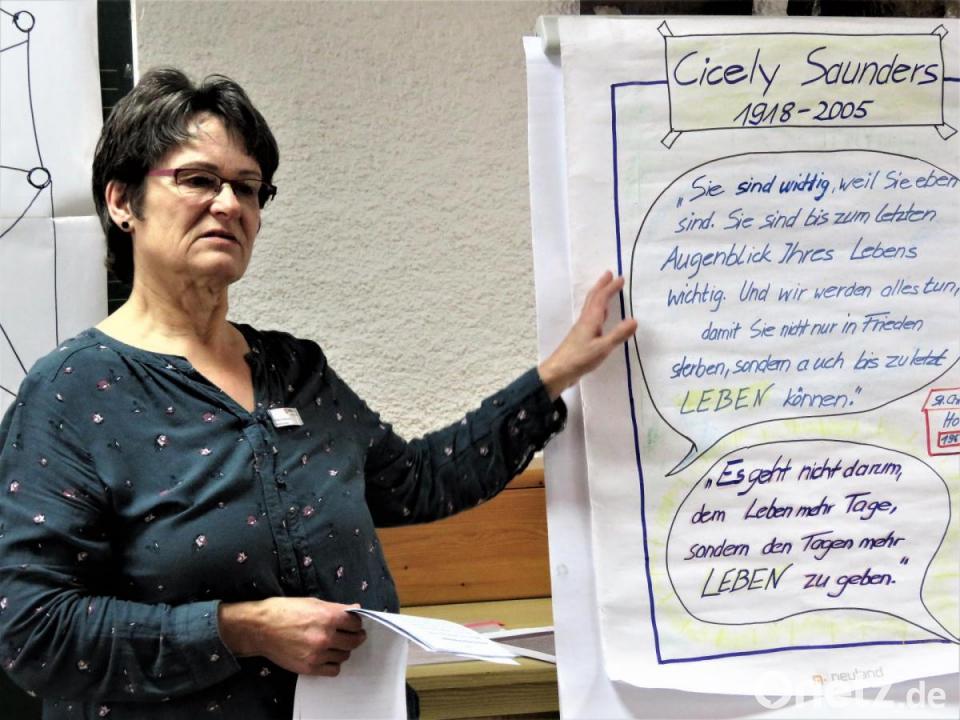 Cicely Saunders
1918-2005
„Sie sind wichtig, weil Sie eben
sind. Sie sind bis zum letzten
Augenblick Ihres Lebens
wichtig. Und wir werden alles tun,
damit Sie nicht nur in Frieden
sterben, sondern auch bis zuletzt
LEBEN können."
„Es geht nicht darum,
dem Leben mehr Tage,
sondern den Tagen mehr
LEBEN zu geben."
neuland
Onetz.de